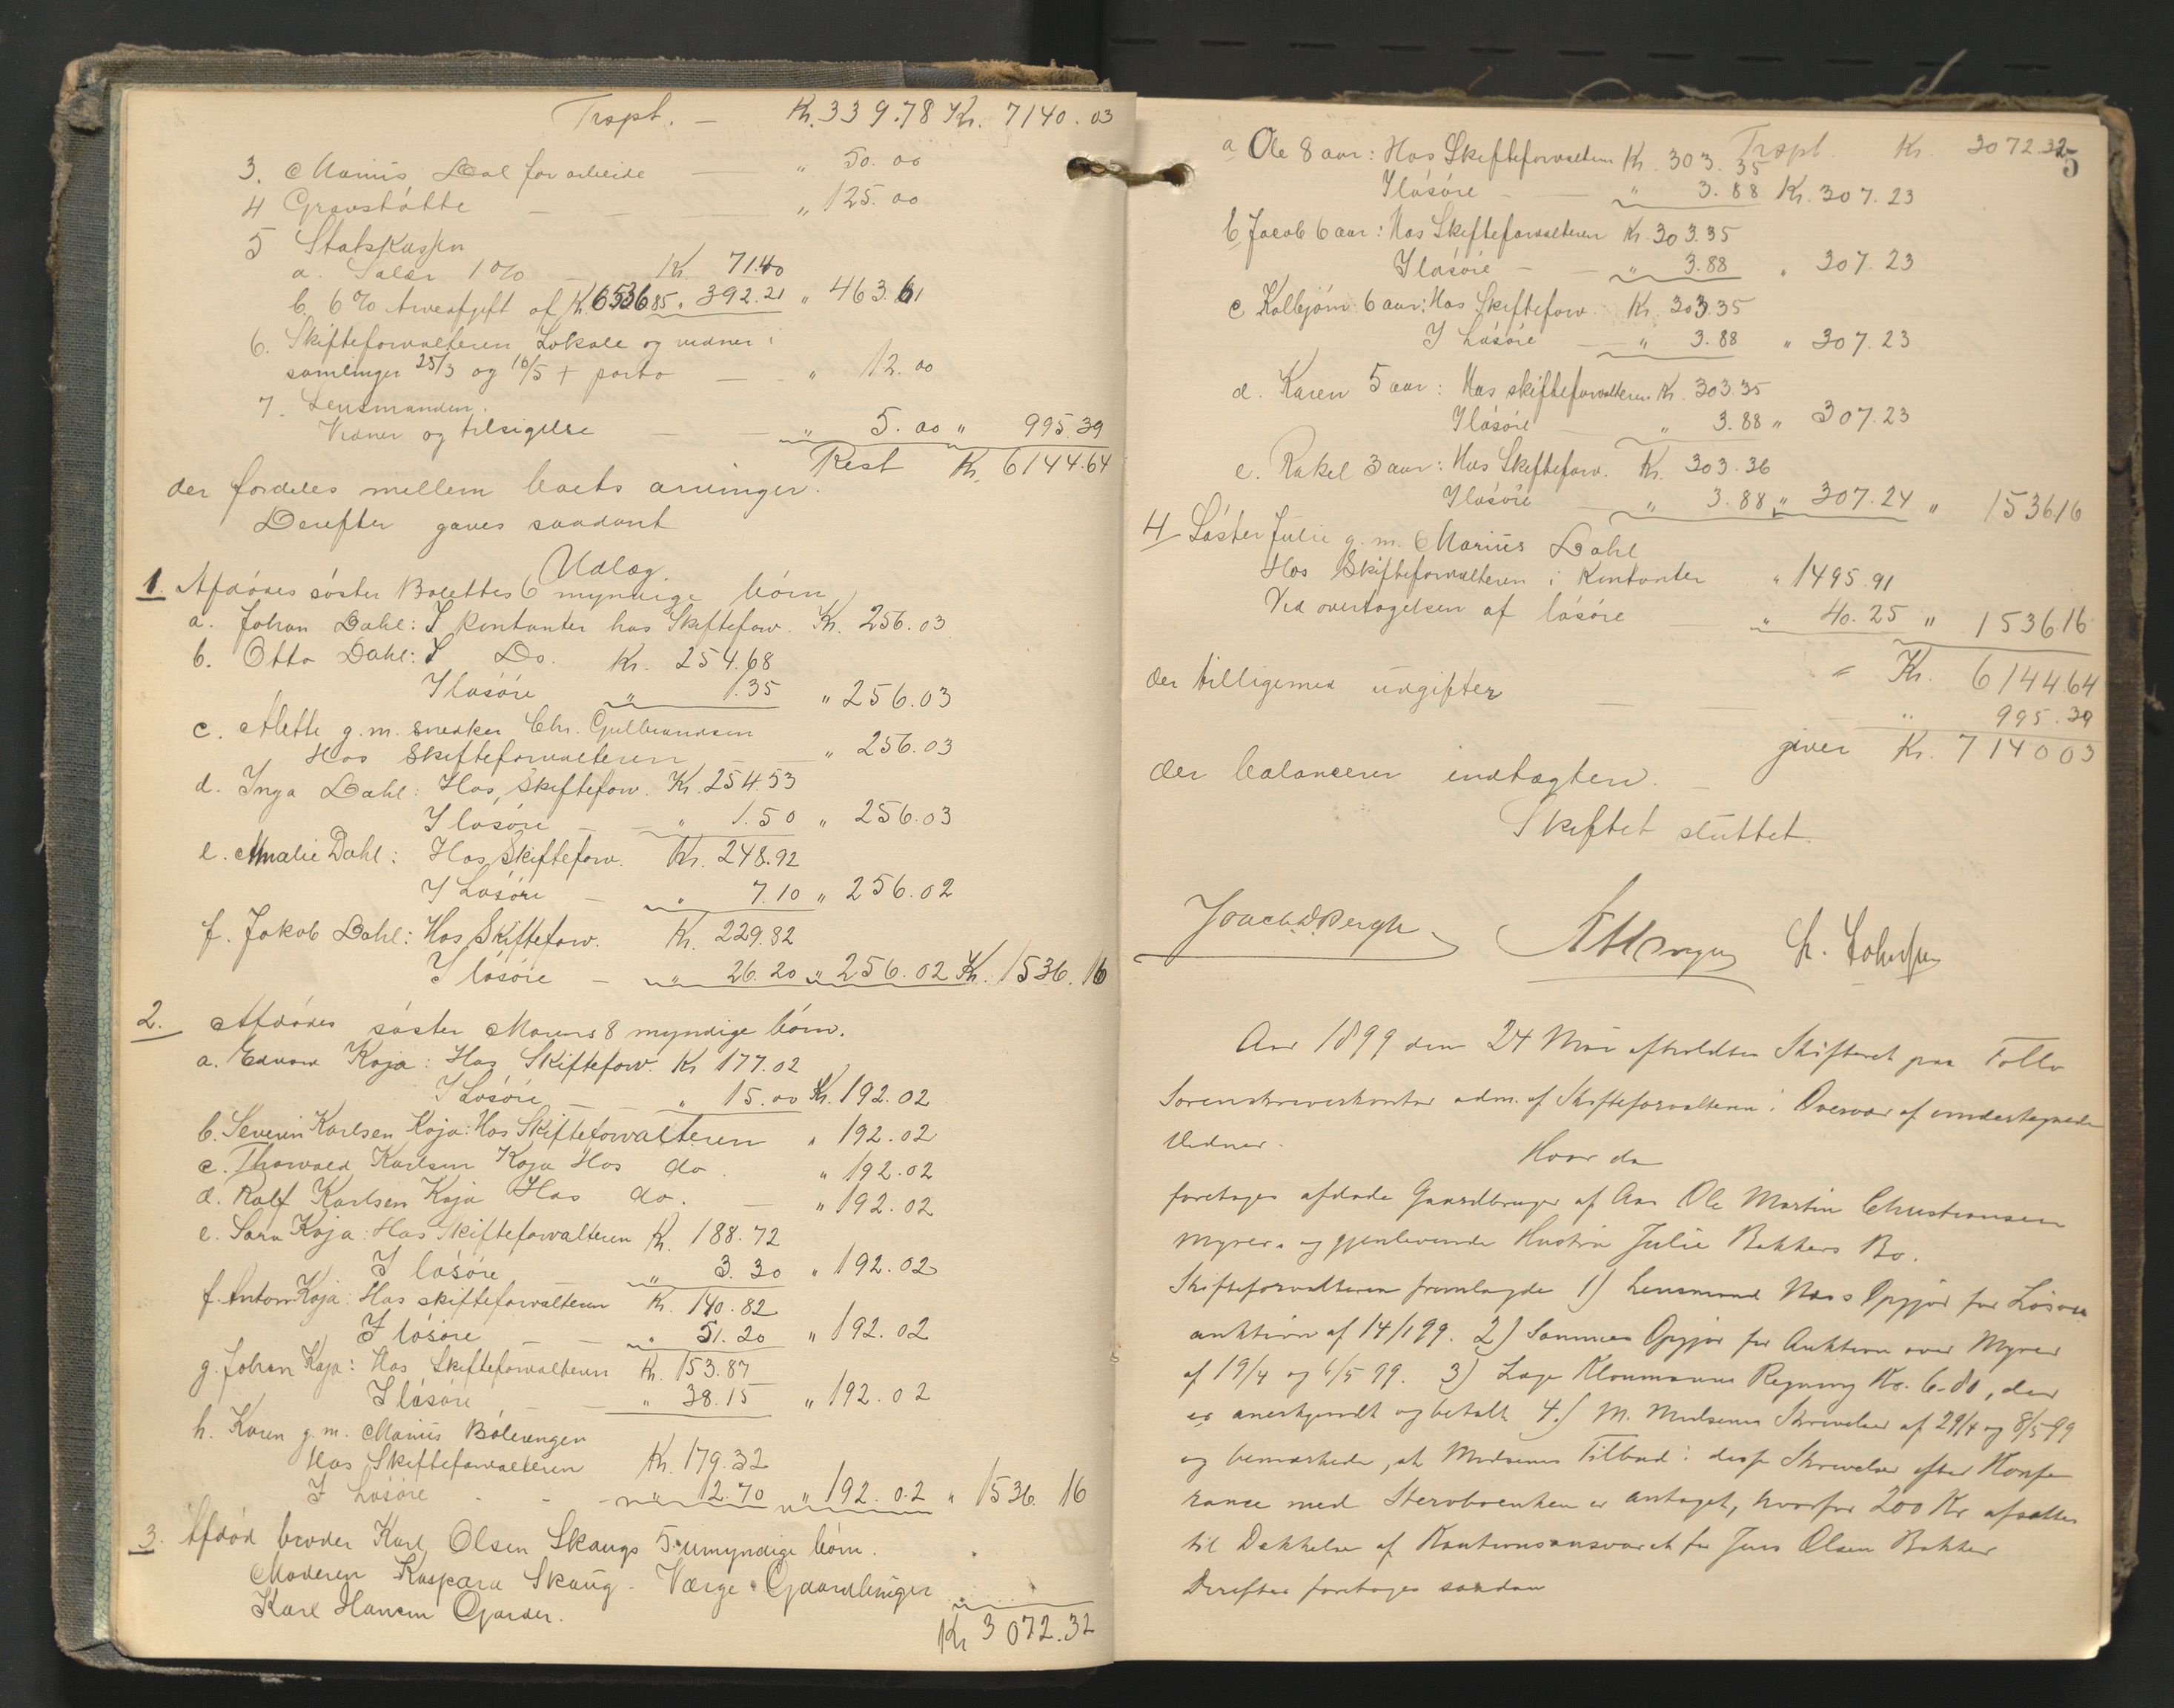 Trspt. — Kr. 339.78 Kr. 7140.03
3. Marius Dal for arbeide — " 50.00
4 Gravstøtte — — — " 125.00
5 Statskassen
a. Salær 1% — Kr. 71.40
b. 6% Arveafgift af Kr. 6536.85 " 392.21 " 463.61
6. Skifteforvalteren Lokale og vidner i
samlinger 25/3 og 16/5 + porto — " 12.00
7. Lensmanden.
Vidner og tilsigelse — — " 5.00 " 995.39
Rest Kr. 6144.64
der fordeles mellem boets arvinger.
Derefter gaves saadant
Udlæg.
1. Afdødes søster Bolettes 6 myndige børn
a. Johan Dahl: I kontanter hos Skifteforv. Kr. 256.03
b. Otto Dahl: I Do. Kr. 254.68
I løsøre " 1.35 " 256.03
c. Alette g.m. snedker Chr. Gulbrandsen
Hos Skifteforvalteren — " 256.03
d. Inga Dahl: Hos Skifteforv. Kr. 254.53
I løsøre — " 1.50 " 256.03
e. Amalie Dahl: Hos Skifteforv. Kr. 248.92
I Løsøre — " 7.10 " 256.02
f. Jakob Dahl: Hos Skifteforv. Kr. 229.82
I løsøre — " 26.20 " 256.02 Kr. 1536.16
2. Afdødes søster Marens 8 myndige børn.
a. Edvard Kaja: Hos Skifteforv. Kr 177.02
I Løsøre — " 15.00 Kr. 192.02
b. Severin Karlsen Kaja: Hos Skifteforvalteren " 192.02
c. Thorvald Karlsen Kaja Hos do. " 192.02
d. Ralf Karlsen Kaja Hos do. — " 192.02
e. Sara Kaja: Hos Skifteforvalteren Kr. 188.72
I løsøre — " 3.30 " 192.02
f. Anton Kaja: Hos skifteforvalteren Kr. 140.82
I løsøre — — " 51.20 " 192.02
g. Johan Kaja: Hos Skifteforvalteren Kr. 153.87
I løsøre — " 38.15 " 192.02
h. Karen g.m. Marius Bølerengen
Hos Skifteforvalteren Kr. 179.32
I Løsøre - - " 12.70 " 192.02 " 1536.16
3. Afdød broder Karl Olsen Skaugs 5 umyndige børn.
Moderen Kaspara Skaug. Værge Gaardbruger
Karl Hansen Gjarder.
Kr 3072.32
5
Trspt. Kr. 3072.32
a Ole 8 aar: Hos Skifteforvalteren Kr. 303.35
I løsøre — " 3.88 Kr. 307.23
b Jacob 6 aar: Hos Skifteforvalteren Kr. 303.35
I løsøre — — " 3.88 " 307.23
c Kolbjørn 6 aar: Hos Skifteforv. Kr. 303.35
I Løsøre — " 3.88 " 307.23
d. Karen 5 aar: Hos skifteforvalteren Kr. 303.35
I løsøre — " 3.88 " 307.23
e. Rakel 3 aar: Hos Skifteforv. Kr. 303.36
I løsøre — " 3.88 " 307.24 " 1536.16
4 Søster Julie g.m. Marius Dahl
Hos Skifteforvalteren i Kontanter " 1495.91
Ved overtagelsen af løsøre — " 40.25 " 1536.16
= Kr. 6144.64
der tilligemed udgifter — — — " 995.39
giver Kr. 7140.03
der balancerer indtægten. —
Skiftet sluttet.
Joach. D. Bergh.
Aar 1899 den 24 Mai afholdtes Skifteret paa Follo
Sorenskriverkontor adm. af Skifteforvalteren i Overvær af undertegnede
Vidner.
Hvor da
foretoges afdøde Gaardbruger af Aas Ole Martin Christiansen
Myrer. og gjenlevende Hustru Julie Bakkers Bo.
Skifteforvalteren fremlagde 1) Lensmand Næs's Opgjør for Løsøre
auktion af 14/1 99. 2) Sammes Opgjør for Auktion over Myrer
af 19/4 og 6/5 99. 3) Læge Kloumanns Regning Kr. 6.80, der
er anerkjendt og betalt 4.) M. Madsens Skrivelser af 29/4 og 8/5-99
og bemærkede, at Madsens Tilbud i disse Skrivelser efter Konfe
rance med Stervboenken er antaget, hvorfor 200 Kr. afsattes
til Dækkelse af Kautionsansvaret for Jens Olsen Bakker
Derefter foretoges saadan